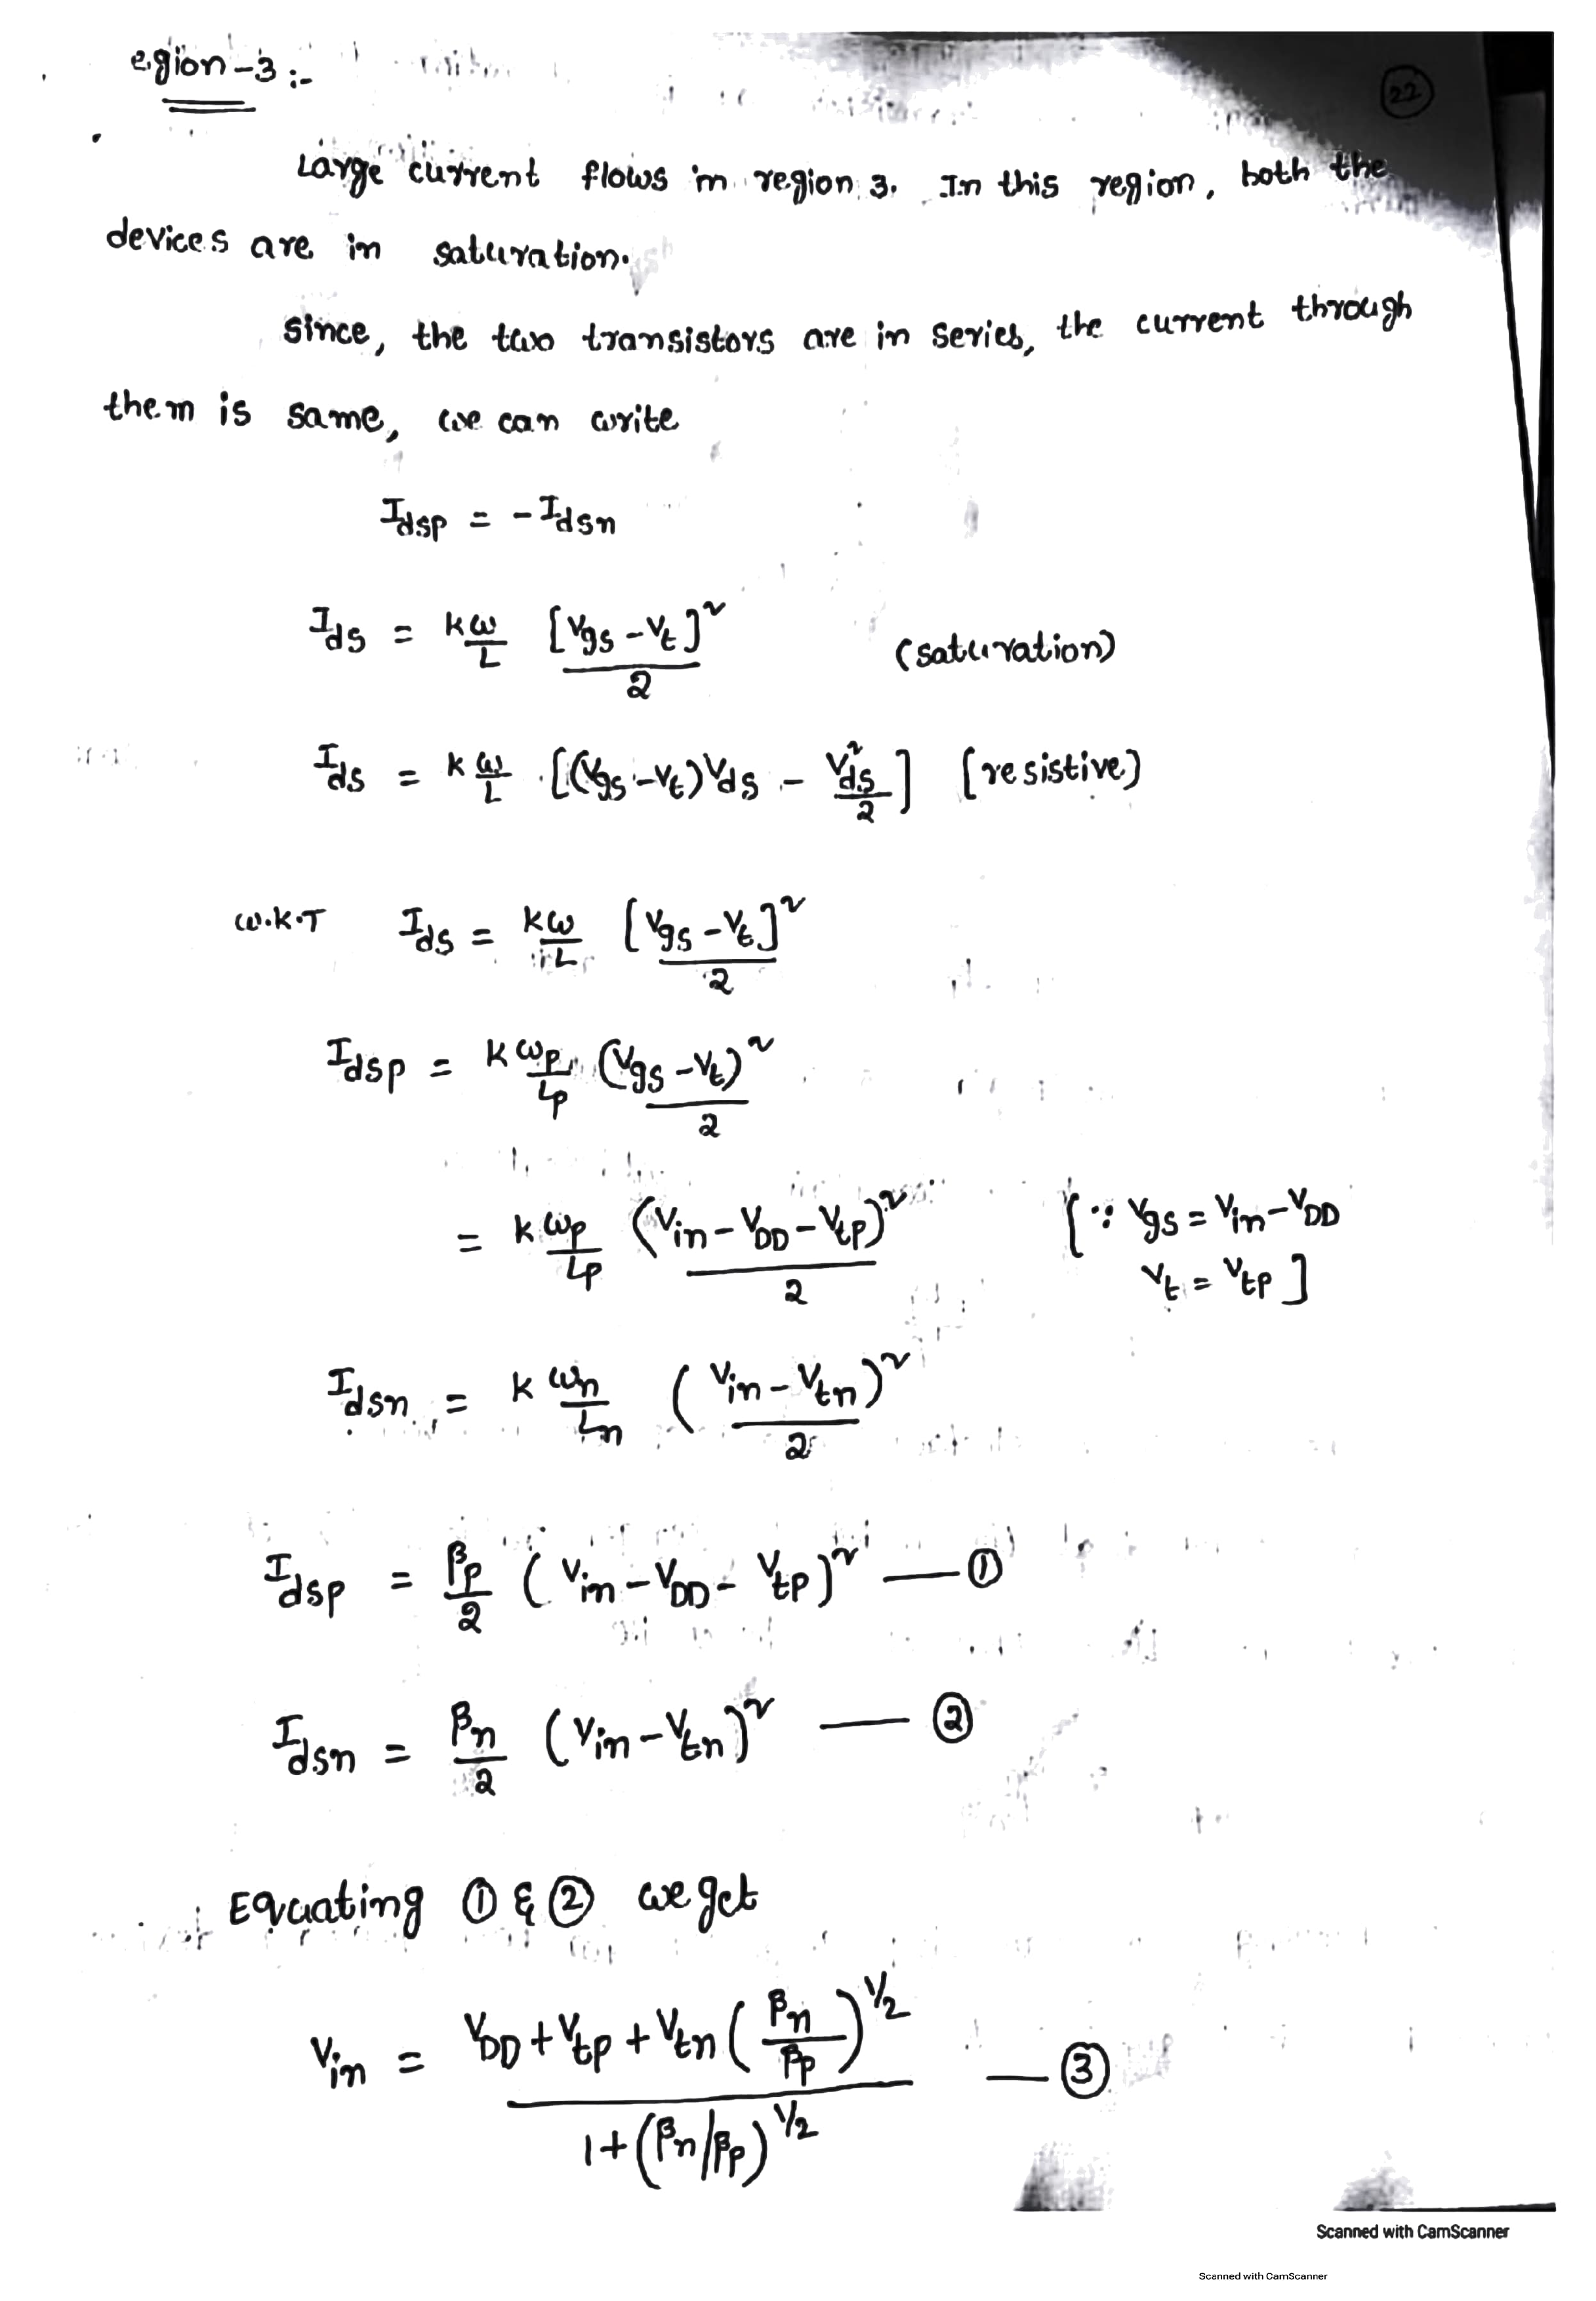 egion-3 :-
22
Large current flows in region 3. In this region, both the
devices are in saturation.
Since, the two transistors are in series, the current through
them is same, we can write
Idsp = -Idsn
Ids = kω/L [Vgs - Vt]²/2 (saturation)
Ids = k ω/L [(Vgs - Vt)Vds - Vds²/2] [resistive)
W.K.T Ids = kω/L [Vgs - Vt]²/2
Idsp = k ωp/Lp (Vgs - Vt)²/2
= k ωp/Lp (Vin - VDD - Vtp)²/2 [∵ Vgs = Vin - VDD
Vt = Vtp]
Idsn = k ωn/Ln (Vin - Vtn)²/2
Idsp = βp/2 (Vin - VDD - Vtp)² — ①
Idsn = βn/2 (Vin - Vtn)² — ②
Equating ① & ② we get
Vin = VDD + Vtp + Vtn (βn/βp)^1/2 — ③
1 + (βn/βp)^1/2
Scanned with CamScanner
Scanned with CamScanner